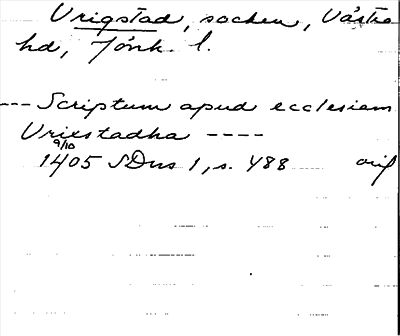 Vrigstad, socken, Västra
hd, Jönk. l.
--- Scriptum apud ecclesiam
Vrixstadha ----
9/10
1405 SDns 1, s. 488 orig